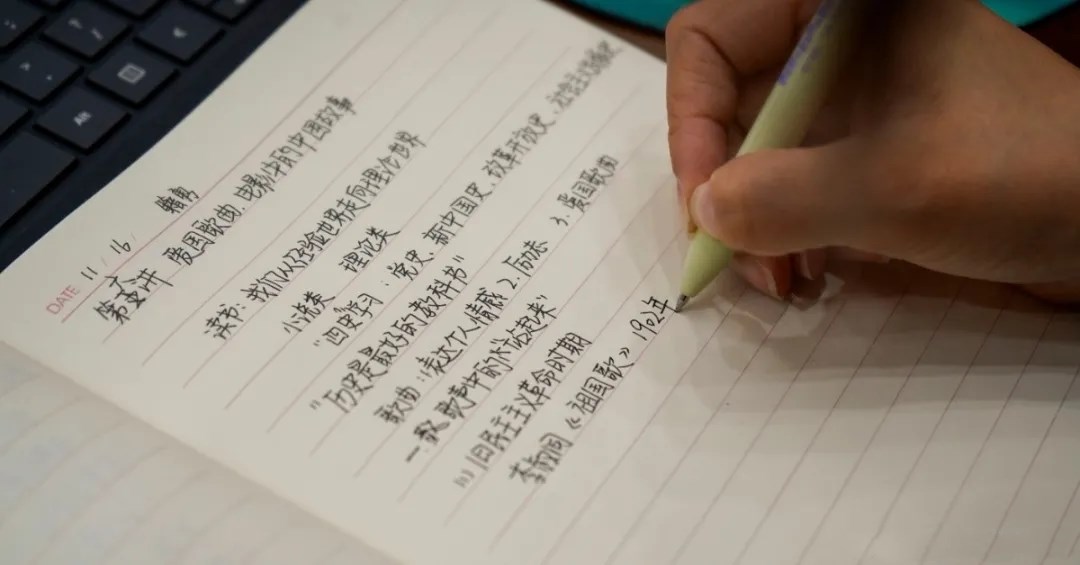 Alt
DATE 11 / 16 /
第五讲 爱国歌曲、电影中的中国故事
读书:我们从经验世界走向理论世界
小说类 理论类
"四史学习":党史、新中国史、改革开放史、社会主义发展史
"历史是最好的教科书"
歌曲:1.表达个人情感 2.励志 3.爱国歌曲
一、歌声中的"站起来"
(1)旧民主主义革命时期
《祖国歌》1902年